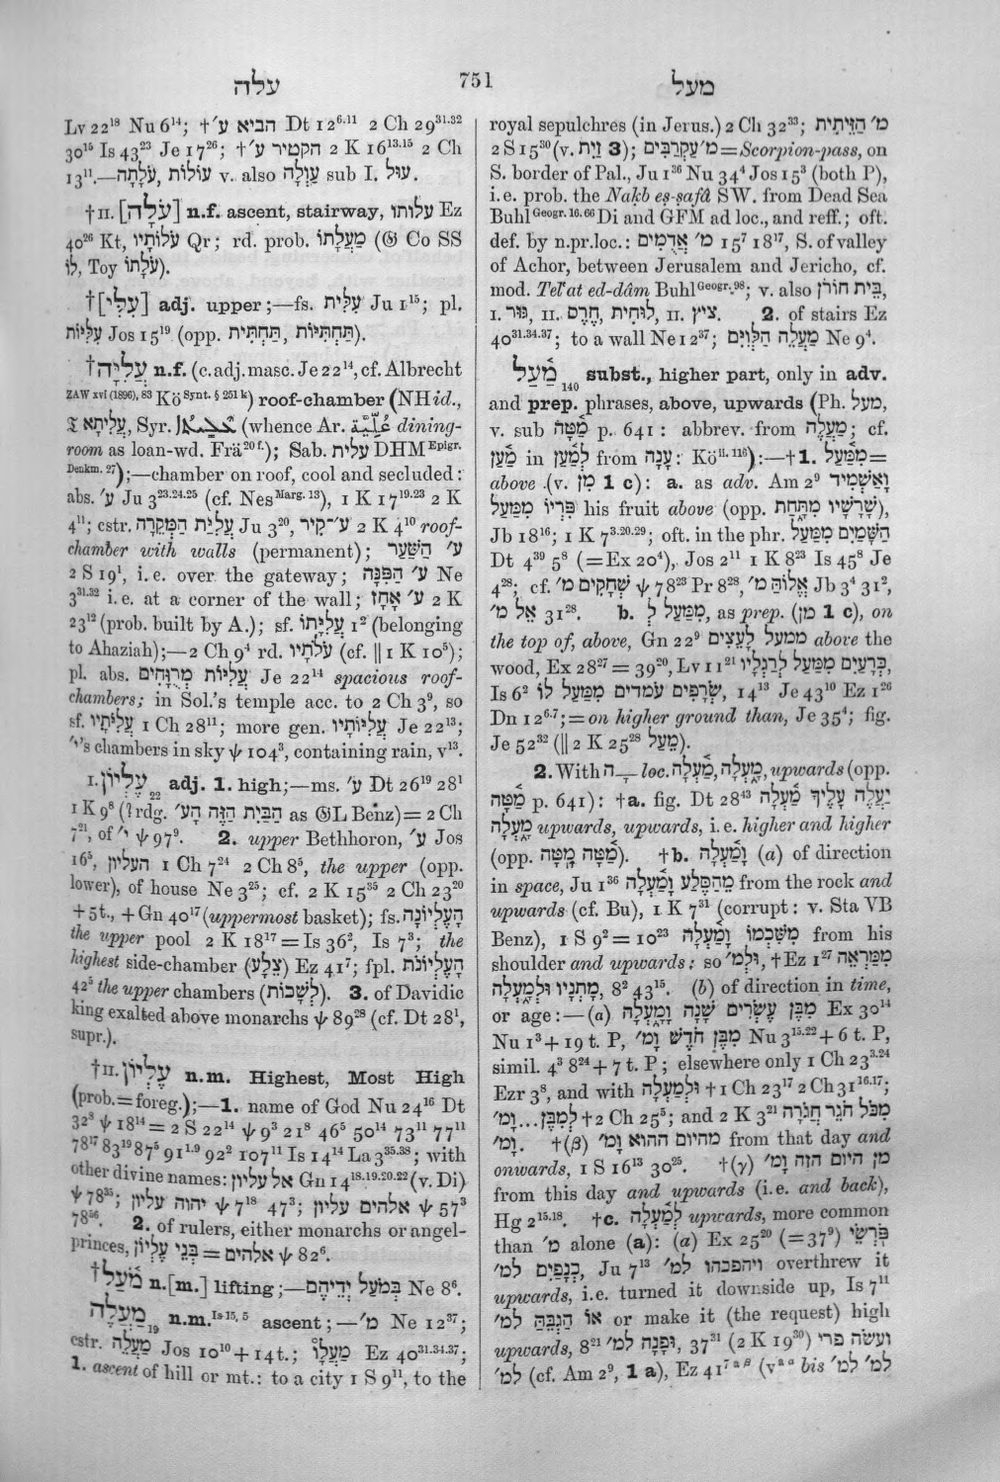 עלה
751
מעל
Lv 22¹⁸ Nu 6¹⁴; †הביא ע׳ Dt 12⁶·¹¹ 2 Ch 29³¹·³²
30¹⁵ Is 43²³ Je 17²⁶; †הקטיר ע׳ 2 K 16¹³·¹⁵ 2 Ch
13¹¹.—עוֹלוֹת, עֹלָתָה v. also עַוְלָה sub I. עול.
†II. [עֹלָה] n.f. ascent, stairway, עלותו Ez
40²⁶ Kt, עֹלוֹתָיו Qr; rd. prob. מַעֲלָתוֹ (𝔊 Co SS
לוֹ, Toy עֹלָתוֹ).
†[עִלִּי] adj. upper;—fs. עִלִּית Ju 1¹⁵; pl.
עִלִּיּוֹת Jos 15¹⁹ (opp. תַּחְתִּית, תַּחְתִּיּוֹת).
†עֲלִיָּה n.f. (c. adj. masc. Je 22¹⁴, cf. Albrecht
ZAW xvi (1896), 83 Kö Synt. § 251 k) roof-chamber (NH id.,
𝔗 עִלִּיתָא, Syr. (whence Ar. عُلِّيَّة dining-
room as loan-wd. Frä²⁰ ᶠ·); Sab. עלית DHM Epigr.
Denkm. 27);—chamber on roof, cool and secluded:
abs. ע׳ Ju 3²³·²⁴·²⁵ (cf. Nes Marg. 13), 1 K 17¹⁹·²³ 2 K
4¹¹; cstr. עֲלִיַּת הַמְּקֵרָה Ju 3²⁰, ע׳־קִיר 2 K 4¹⁰ roof-
chamber with walls (permanent); ע׳ הַשַּׁעַר
2 S 19¹, i.e. over the gateway; ע׳ הַפִּנָּה Ne
3³¹·³² i.e. at a corner of the wall; ע׳ אָחָז 2 K
23¹² (prob. built by A.); sf. עֲלִיָּתוֹ 1² (belonging
to Ahaziah);—2 Ch 9⁴ rd. עֹלֹתָיו (cf. ‖ 1 K 10⁵);
pl. abs. עֲלִיּוֹת מְרֻוָּחִים Je 22¹⁴ spacious roof-
chambers; in Sol.'s temple acc. to 2 Ch 3⁹, so
sf. עֲלִיֹּתָיו 1 Ch 28¹¹; more gen. עֲלִיּוֹתָיו Je 22¹³;
י׳'s chambers in sky ψ 104³, containing rain, v¹³.
I. עֶלְיוֹן 22 adj. 1. high;—ms. ע׳ Dt 26¹⁹ 28¹
1 K 9⁸ (? rdg. הַבַּיִת הַזֶּה הָע׳ as 𝔊L Benz) = 2 Ch
7²¹, of י׳ ψ 97⁹. 2. upper Bethhoron, ע׳ Jos
16⁵, העליון 1 Ch 7²⁴ 2 Ch 8⁵, the upper (opp.
lower), of house Ne 3²⁵; cf. 2 K 15³⁵ 2 Ch 23²⁰
+ 5 t., + Gn 40¹⁷ (uppermost basket); fs. הָעֶלְיוֹנָה
the upper pool 2 K 18¹⁷ = Is 36², Is 7³; the
highest side-chamber (צֵלָע) Ez 41⁷; fpl. הָעֶלְיוֹנֹת
42⁵ the upper chambers (לְשָׁכוֹת). 3. of Davidic
king exalted above monarchs ψ 89²⁸ (cf. Dt 28¹,
supr.).
†II. עֶלְיוֹן n.m. Highest, Most High
(prob. = foreg.);—1. name of God Nu 24¹⁶ Dt
32⁸ ψ 18¹⁴ = 2 S 22¹⁴ ψ 9³ 21⁸ 46⁵ 50¹⁴ 73¹¹ 77¹¹
78¹⁷ 83¹⁹ 87⁵ 91¹·⁹ 92² 107¹¹ Is 14¹⁴ La 3³⁵·³⁸; with
other divine names: אל עליון Gn 14¹⁸·¹⁹·²⁰·²² (v. Di)
ψ 78³⁵; יהוה עליון ψ 7¹⁸ 47³; אלהים עליון ψ 57³
78⁵⁶. 2. of rulers, either monarchs or angel-
princes, בְּנֵי עֶלְיוֹן = אלהים ψ 82⁶.
†מֹעַל n.[m.] lifting;—בְּמֹעַל יְדֵיהֶם Ne 8⁶.
מַעֲלֶה 19 n.m. Is 15, 5 ascent;—מ׳ Ne 12³⁷;
cstr. מַעֲלֵה Jos 10¹⁰ + 14 t.; מַעֲלוֹ Ez 40³¹·³⁴·³⁷;
1. ascent of hill or mt.: to a city 1 S 9¹¹, to the
royal sepulchres (in Jerus.) 2 Ch 32³³; מ׳ הַזֵּיתִית
2 S 15³⁰ (v. זַיִת 3); מ׳ עַקְרַבִּים = Scorpion-pass, on
S. border of Pal., Ju 1³⁶ Nu 34⁴ Jos 15³ (both P),
i.e. prob. the Naḳb eṣ-ṣafâ SW. from Dead Sea
Buhl Geogr. 16. 66 Di and GFM ad loc., and reff.; oft.
def. by n.pr.loc.: מ׳ אֲדֻמִּים 15⁷ 18¹⁷, S. of valley
of Achor, between Jerusalem and Jericho, cf.
mod. Telʿat ed-dâm Buhl Geogr. 98; v. also בֵּית חוֹרֹן,
I. גּוּר, II. לוּחִית, חֶרֶם, II. צִיץ. 2. of stairs Ez
40³¹·³⁴·³⁷; to a wall Ne 12³⁷; מַעֲלֵה הַלְּוִיִּם Ne 9⁴.
מַ֫עַל 140 subst., higher part, only in adv.
and prep. phrases, above, upwards (Ph. מעל,
v. sub מַטָּה p. 641: abbrev. from מַעֲלֶה; cf.
מַעַן in לְמַעַן from עָנָה: Kö ii. 116):—†1. מִמַּעַל =
above (v. מִן 1 c): a. as adv. Am 2⁹ וָאַשְׁמִיד
פִּרְיוֹ מִמַּעַל his fruit above (opp. שָׁרָשָׁיו מִתָּחַת),
Jb 18¹⁶; 1 K 7³·²⁰·²⁹; oft. in the phr. הַשָּׁמַיִם מִמַּעַל
Dt 4³⁹ 5⁸ (= Ex 20⁴), Jos 2¹¹ 1 K 8²³ Is 45⁸ Je
4²⁸; cf. שְׁחָקִים מ׳ ψ 78²³ Pr 8²⁸, אֱלוֹהַּ מ׳ Jb 3⁴ 31²,
אֵל מ׳ 31²⁸. b. מִמַּעַל לְ, as prep. (מִן 1 c), on
the top of, above, Gn 22⁹ ממעל לָעֵצִים above the
wood, Ex 28²⁷ = 39²⁰, Lv 11²¹ כְּרָעַיִם מִמַּעַל לְרַגְלָיו,
Is 6² שְׂרָפִים עֹמדים מִמַּעַל לוֹ, 14¹³ Je 43¹⁰ Ez 1²⁶
Dn 12⁶·⁷; = on higher ground than, Je 35⁴; fig.
Je 52³² (‖ 2 K 25²⁸ מֵעַל).
2. With ה ָ loc. מַ֫עְלָה, מָ֑עְלָה, upwards (opp.
מַטָּה p. 641): †a. fig. Dt 28⁴³ יַעֲלֶה עָלֶיךָ מַעְלָה
מָּעְלָה upwards, upwards, i.e. higher and higher
(opp. מַטָּה מָּטָּה). †b. וָמַעְלָה (a) of direction
in space, Ju 1³⁶ מֵהַסֶּלַע וָמַעְלָה from the rock and
upwards (cf. Bu), 1 K 7³¹ (corrupt: v. Sta VB
Benz), 1 S 9² = 10²³ מִשִּׁכְמוֹ וָמַעְלָה from his
shoulder and upwards; so וּלְמ׳, †Ez 1²⁷ מִמַּרְאֵה
מָתְנָיו וּלְמָעְלָה, 8² 43¹⁵. (b) of direction in time,
or age:—(α) מִבֶּן עֶשְׂרִים שָׁנָה וָמַעְלָה Ex 30¹⁴
Nu 1³ + 19 t. P, מִבֶּן חֹדֶשׁ וָמ׳ Nu 3¹⁵·²² + 6 t. P,
simil. 4³ 8²⁴ + 7 t. P; elsewhere only 1 Ch 23³·²⁴
Ezr 3⁸, and with וּלְמַעְלָה †1 Ch 23¹⁷ 2 Ch 31¹⁶·¹⁷;
לְמִבֶּן...וָמ׳ †2 Ch 25⁵; and 2 K 3²¹ מִכֹּל חֹגֵר חֲגֹרָה
וָמ׳. †(β) מהיום ההוא וָמ׳ from that day and
onwards, 1 S 16¹³ 30²⁵. †(γ) מן היום הזה וָמ׳
from this day and upwards (i.e. and back),
Hg 2¹⁵·¹⁸. †c. לְמַעְלָה upwards, more common
than מ׳ alone (a): (a) Ex 25²⁰ (= 37⁹) פֹּרְשֵׂי
כְנָפַיִם למ׳, Ju 7¹³ ויהפכהו למ׳ overthrew it
upwards, i.e. turned it downside up, Is 7¹¹
אוֹ הַגְבֵּהַּ למ׳ or make it (the request) high
upwards, 8²¹ וּפָנָה למ׳, 37³¹ (2 K 19³⁰) ועשה פרי
למ׳ (cf. Am 2⁹, 1 a), Ez 41⁷ᵃᵝ (vᵃᵅ bis למ׳ למ׳